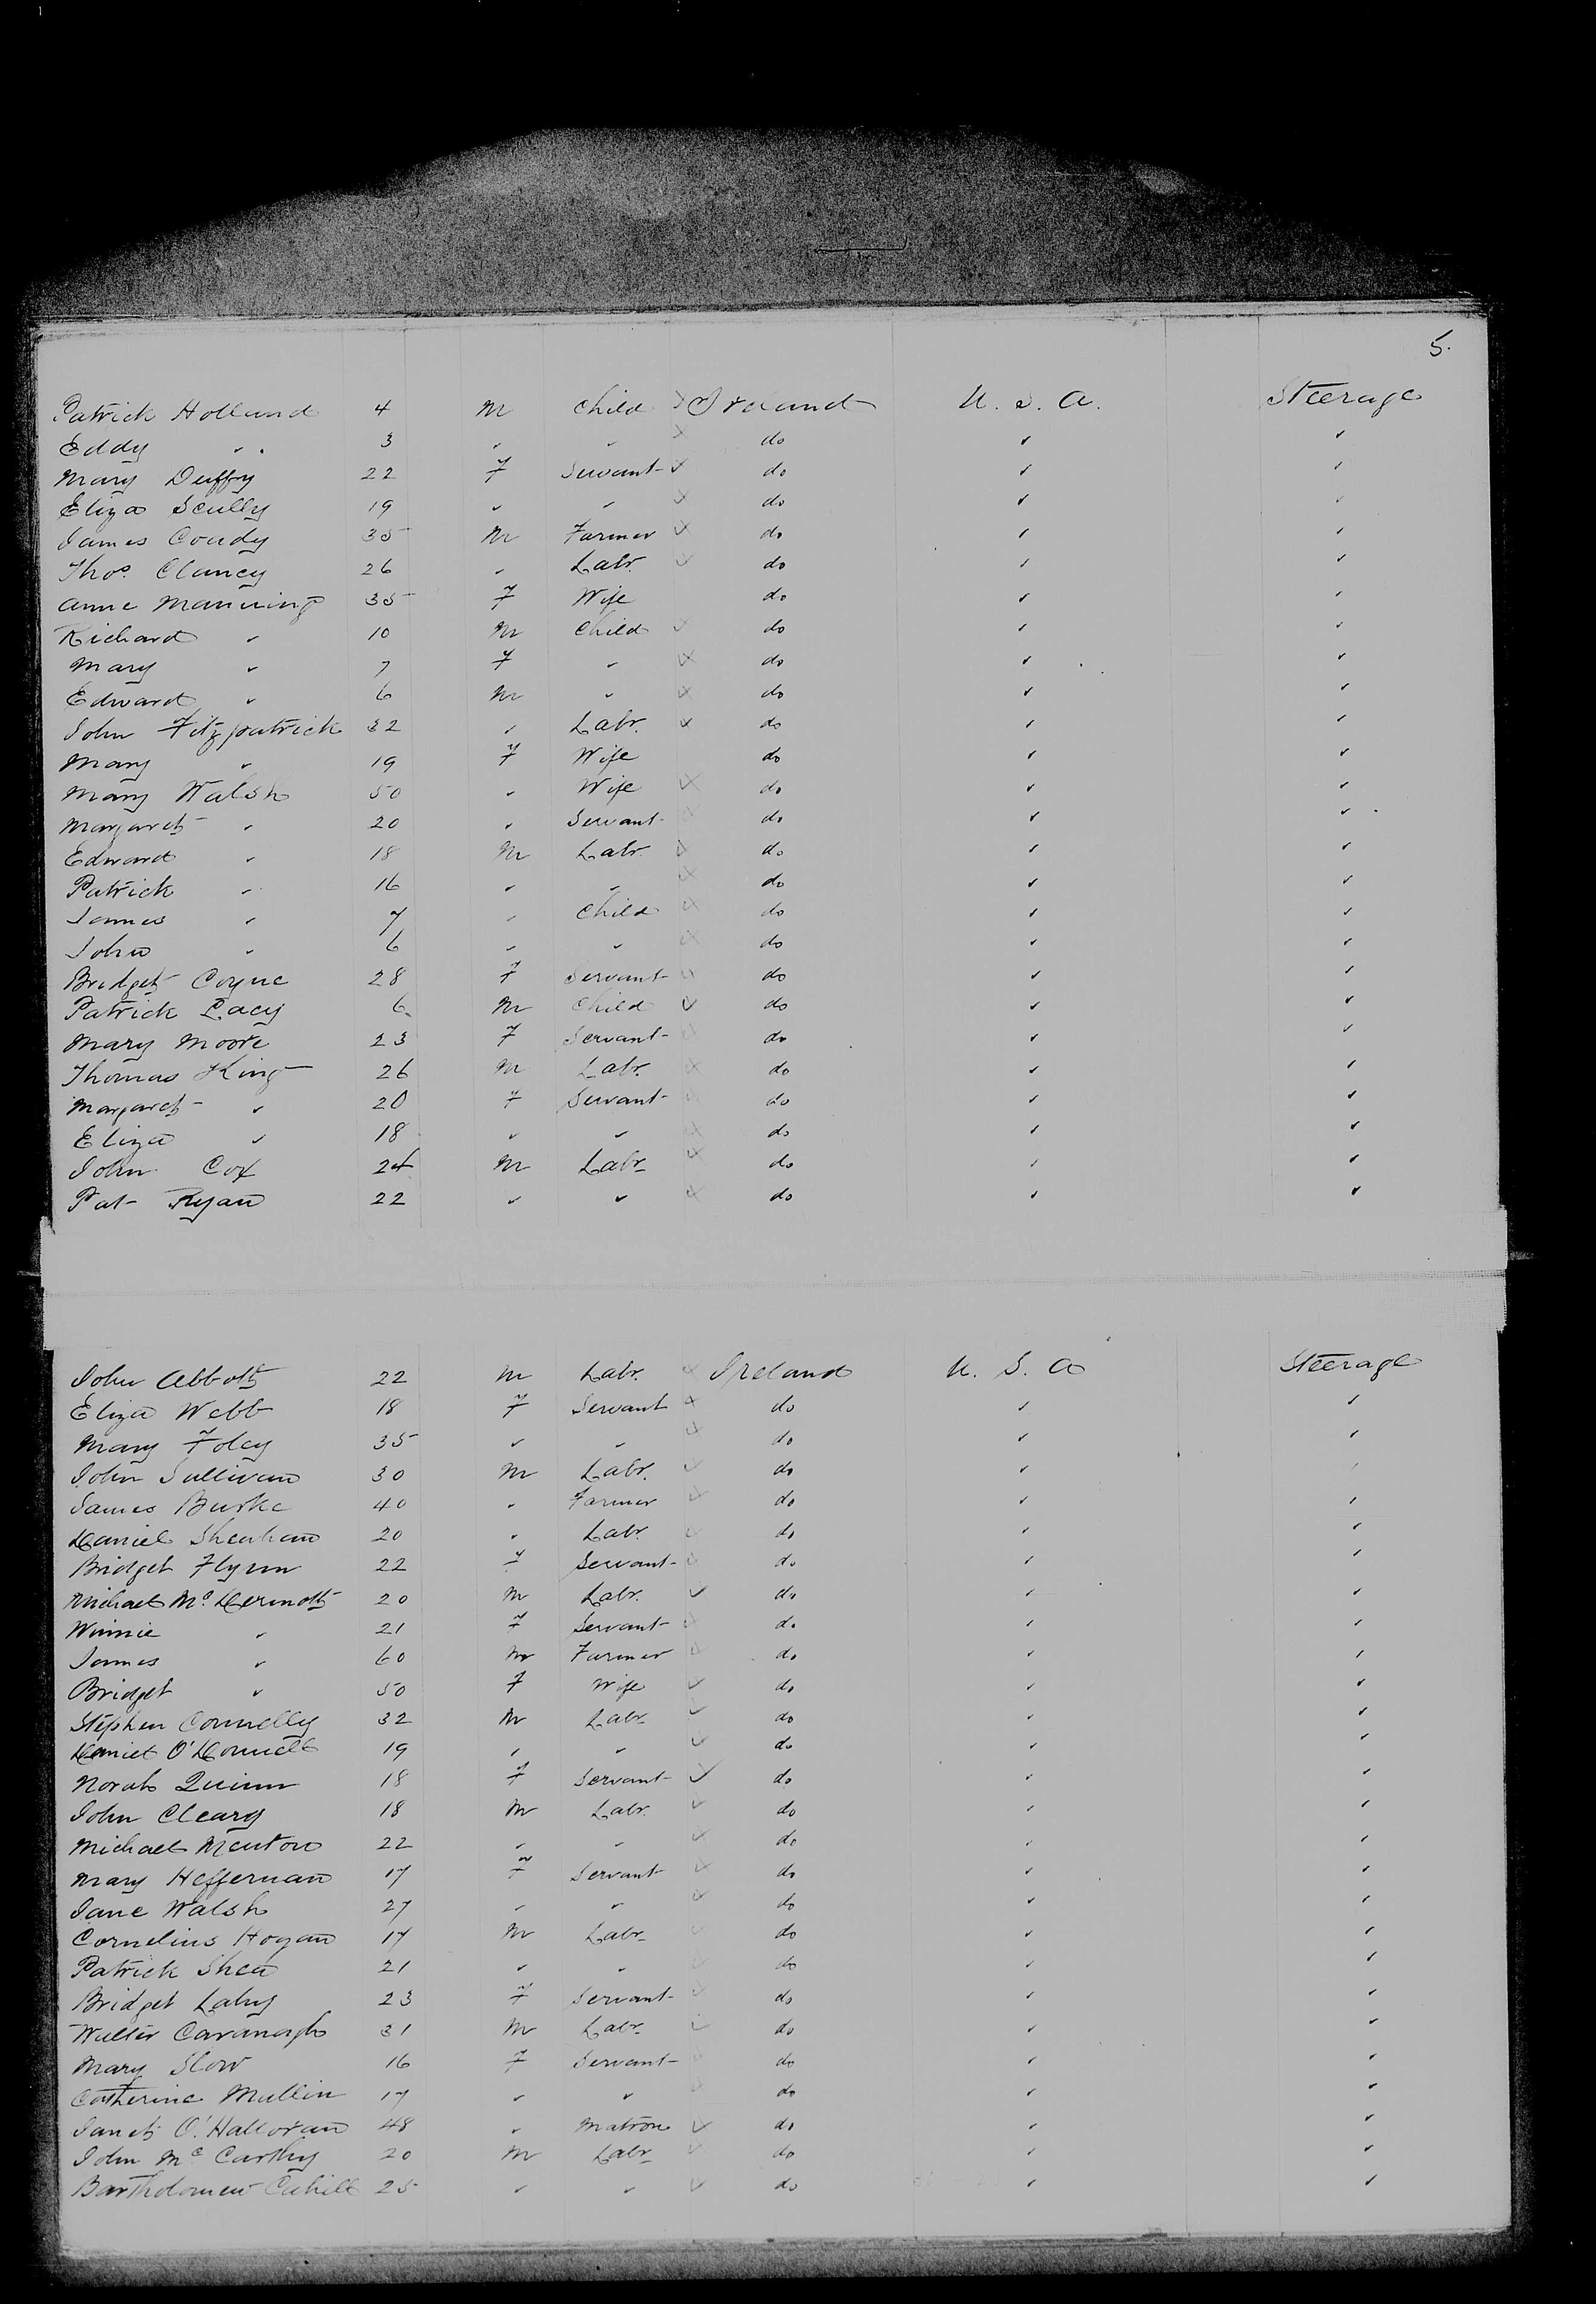 5.
Patrick Holland 4 M Child Ireland U. S. A. Steerage
Eddy " 3 " " do " "
Mary Duffy 22 F Servant do " "
Eliza Scully 19 " " do " "
James Coudy 35 M Farmer do " "
Thos. Clancy 26 " Labr. do " "
Anne Manning 35 F Wife do " "
Richard " 10 M Child do " "
Mary " 7 F " do " "
Edward " 6 M " do " "
John Fitzpatrick 32 " Labr. do " "
Mary " 19 F Wife do " "
Mary Walsh 50 " Wife do " "
Margaret " 20 " Servant do " "
Edward " 18 M Labr. do " "
Patrick " 16 " " do " "
James " 7 " Child do " "
John " 6 " " do " "
Bridget Coyne 28 F Servant do " "
Patrick Lacy 6 M Child do " "
Mary Moore 23 F Servant do " "
Thomas King 26 M Labr. do " "
Margaret " 20 F Servant do " "
Eliza " 18 " " do " "
John Cox 24 M Labr. do " "
Pat Ryan 22 " " do " "
John Abbott 22 M Labr. Ireland U. S. A Steerage
Eliza Webb 18 F Servant do " "
Mary Foley 35 " " do " "
John Sullivan 30 M Labr. do " "
James Burke 40 " Farmer do " "
Daniel Sheahan 20 " Labr. do " "
Bridget Flynn 22 F Servant do " "
Michael McDermott 20 M Labr. do " "
Winnie " 21 F Servant do " "
James " 60 M Farmer do " "
Bridget " 50 F Wife do " "
Stephen Connelly 32 M Labr. do " "
Daniel O'Donnell 19 " " do " "
Norah Quinn 18 F Servant do " "
John Cleary 18 M Labr. do " "
Michael Menton 22 " " do " "
Mary Heffernan 17 F Servant do " "
Jane Walsh 27 " " do " "
Cornelius Hogan 17 M Labr. do " "
Patrick Shea 21 " " do " "
Bridget Lahy 23 F Servant do " "
Walter Cavanagh 31 M Labr. do " "
Mary Slow 16 F Servant do " "
Catherine Mullin 17 " " do " "
Janet O'Halloran 48 " Matron do " "
John McCarthy 20 M Labr. do " "
Bartholomew Cahill 25 " " do " "